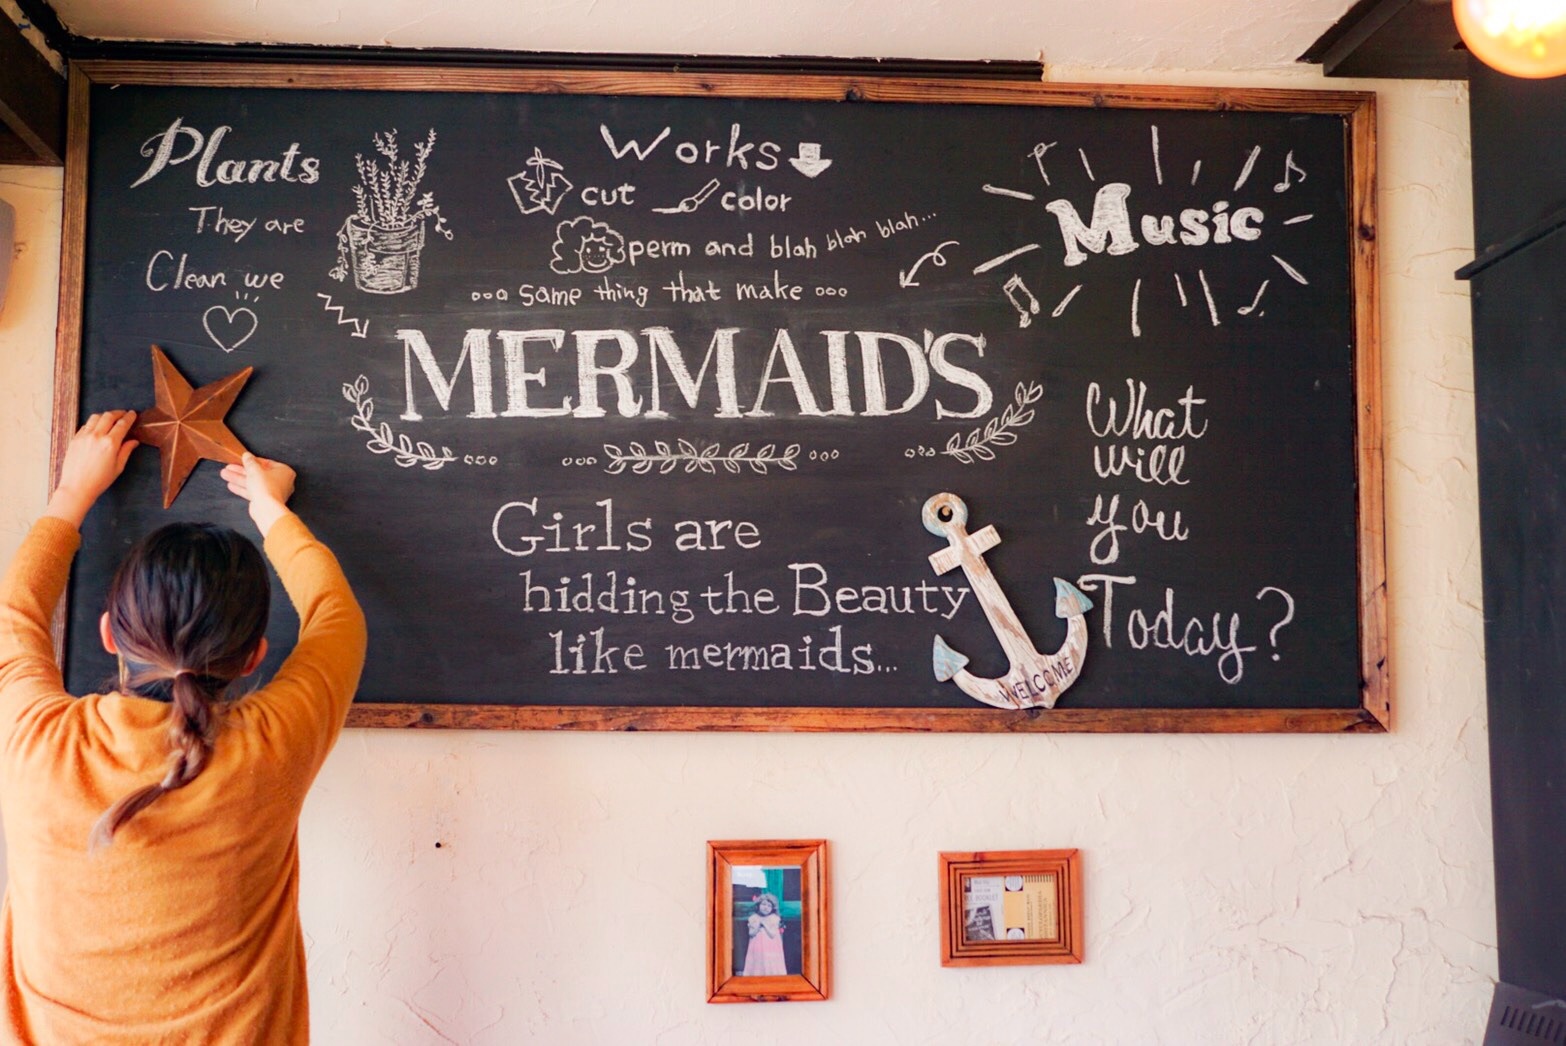 Plants
They are
Clean we
Works
cut color
perm and blah blah blah...
... same thing that make ...
MERMAID'S
Music
Girls are
hidding the Beauty
like mermaids...
WELCOME
What
will
you
Today?